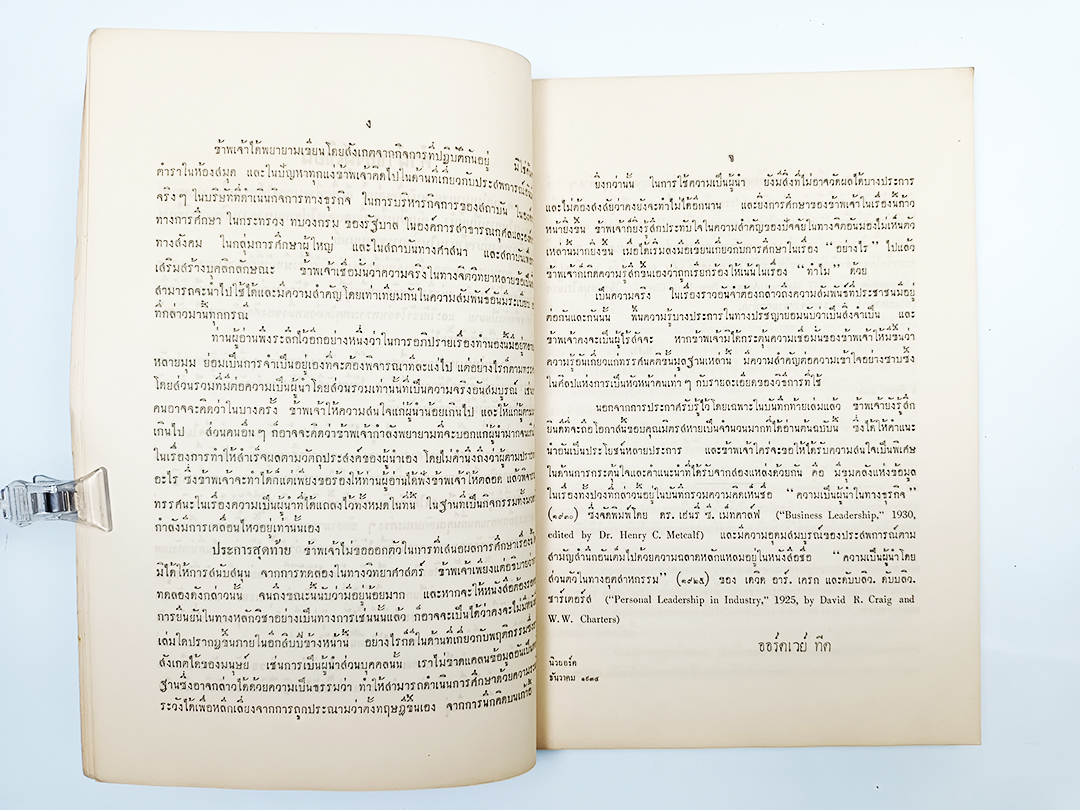 ง
ข้าพเจ้าได้พยายามเขียนโดยสังเกตจากกิจการที่ปฏิบัติกันอยู่ มิใช่
ตำราในห้องสมุด และในปัญหาทุกแง่ข้าพเจ้าคิดไปในด้านที่เกี่ยวกับประสพการณ์
จริงๆ ในบริษัทที่ดำเนินกิจการทางธุรกิจ ในการบริหารกิจการของสถาบัน
ทางการศึกษา ในกระทรวง ทบวงกรม ของรัฐบาล ในองค์การสาธารณกุศลและ
ทางสังคม ในกลุ่มการศึกษาผู้ใหญ่ และในสถาบันทางศาสนา และสถาบันเพื่อ
เสริมสร้างบุคลิกลักษณะ ข้าพเจ้าเชื่อมั่นว่าความจริงในทางจิตวิทยาหลายข้อ
สามารถจะนำไปใช้ได้และมีความสำคัญโดยเท่าเทียมกันในความสัมพันธ์อันมีระเบียบ
ที่กล่าวมานี้ทุกกรณี
ท่านผู้อ่านพึงระลึกไว้อีกอย่างหนึ่งว่าในการอภิปรายเรื่องทำนองนี้มีอยู่
หลายมุม ย่อมเป็นการจำเป็นอยู่เองที่จะต้องพิจารณาทีละแง่ไป แต่อย่างไรก็ตาม
โดยส่วนรวมที่มีต่อความเป็นผู้นำโดยส่วนรวมเท่านั้นที่เป็นความจริงอันสมบูรณ์ เช่น
คนอาจจะคิดว่าในบางครั้ง ข้าพเจ้าให้ความสนใจแก่ผู้นำน้อยเกินไป และให้แก่ผู้ตาม
เกินไป ส่วนคนอื่นๆ ก็อาจจะคิดว่าข้าพเจ้ากำลังพยายามที่จะบอกแก่ผู้นำมากจน
ในเรื่องการทำให้สำเร็จผลตามวัตถุประสงค์ของผู้นำเอง โดยไม่คำนึงถึงว่าผู้ตาม
อะไร ซึ่งข้าพเจ้าจะทำได้ก็แต่เพียงขอร้องให้ท่านผู้อ่านได้ฟังข้าพเจ้าให้ตลอด แล้ว
ทรรศนะในเรื่องความเป็นผู้นำที่ได้แถลงไว้ทั้งหมดในที่นี้ ในฐานที่เป็นกิจกรรมทั้งมวล
กำลังมีการเคลื่อนไหวอยู่เท่านั้นเอง
ประการสุดท้าย ข้าพเจ้าไม่ขอออกตัวในการที่เสนอผลการศึกษาเรื่องนี้
มิได้ให้การสนับสนุน จากการทดลองในทางวิทยาศาสตร์ ข้าพเจ้าเพียงแต่อธิบาย
ทดลองดังกล่าวนั้น จนถึงขณะนี้นับว่ามีอยู่น้อยมาก และหากจะให้หนังสือต้อง
การยืนยันในทางหลักวิชาอย่างเป็นทางการเช่นนั้นแล้ว ก็อาจจะเป็นได้ว่าคงจะไม่มี
เล่มใดปรากฏขึ้นภายในอีกสิบปีข้างหน้านี้ อย่างไรก็ดีในด้านที่เกี่ยวกับพฤติกรรม
สังเกตได้ของมนุษย์ เช่นการเป็นผู้นำส่วนบุคคลนั้น เราไม่ขาดแคลนข้อมูลอันเป็น
ฐานซึ่งอาจกล่าวได้ด้วยความเป็นธรรมว่า ทำให้สามารถดำเนินการศึกษาด้วยความ
ระวังได้เพื่อหลีกเลี่ยงจากการถูกประณามว่าตั้งทฤษฎีขึ้นเอง จากการนึกคิดบนเก้าอี้
จ
ยิ่งกว่านั้น ในการใช้ความเป็นผู้นำ ยังมีสิ่งที่ไม่อาจวัดผลได้บางประการ
และไม่ต้องสงสัยว่าคงยังจะทำไม่ได้อีกนาน และยิ่งการศึกษาของข้าพเจ้าในเรื่องนี้ก้าว
หน้ายิ่งขึ้น ข้าพเจ้าก็ยิ่งรู้สึกประทับใจในความสำคัญของปัจจัยในทางจิตอันมองไม่เห็นตัว
เหล่านี้มากยิ่งขึ้น เมื่อได้เริ่มลงมือเขียนเกี่ยวกับการศึกษาในเรื่อง “อย่างไร” ไปแล้ว
ข้าพเจ้าก็เกิดความรู้สึกขึ้นเองว่าถูกเรียกร้องให้เน้นในเรื่อง “ทำไม” ด้วย
เป็นความจริง ในเรื่องราวอันจำต้องกล่าวถึงความสัมพันธ์ที่ประชาชนมีอยู่
ต่อกันและกันนั้น พื้นความรู้บางประการในทางปรัชญาย่อมนับว่าเป็นสิ่งจำเป็น และ
ข้าพเจ้าคงจะเป็นผู้ไร้สัจจะ หากข้าพเจ้ามิได้กระตุ้นความเชื่อมั่นของข้าพเจ้าให้มีขึ้นว่า
ความรู้อันเกี่ยวแก่ทรรศนคติขั้นมูลฐานเหล่านี้ มีความสำคัญต่อความเข้าใจอย่างซาบซึ้ง
ในศิลปแห่งการเป็นหัวหน้าคนเท่าๆ กับรายละเอียดของวิธีการที่ใช้
นอกจากการประกาศรับรู้ไว้โดยเฉพาะในบันทึกท้ายเล่มแล้ว ข้าพเจ้ายังรู้สึก
ยินดีที่จะถือโอกาสนี้ขอบคุณมิตรสหายเป็นจำนวนมากที่ได้อ่านต้นฉบับนี้ ซึ่งได้ให้คำแนะ
นำอันเป็นประโยชน์หลายประการ และข้าพเจ้าใคร่จะขอให้ได้รับความสนใจเป็นพิเศษ
ในด้านการกระตุ้นใจและคำแนะนำที่ได้รับจากสองแหล่งด้วยกัน คือ มีขุมคลังแห่งข้อมูล
ในเรื่องทั้งปวงที่กล่าวนี้อยู่ในบันทึกรวมความคิดเห็นชื่อ “ความเป็นผู้นำในทางธุรกิจ”
(๑๙๓๐) ซึ่งจัดพิมพ์โดย ดร. เฮนรี่ ซี. เม็ทคาล์ฟ (“Business Leadership,” 1930,
edited by Dr. Henry C. Metcalf) และมีความอุดมสมบูรณ์ของประสพการณ์ตาม
สามัญสำนึกอันเต็มไปด้วยความฉลาดหลักแหลมอยู่ในหนังสือชื่อ “ความเป็นผู้นำโดย
ส่วนตัวในทางอุตสาหกรรม” (๑๙๒๕) ของ เดวิด อาร์. เครก และดับบลิว. ดับบลิว.
ชาร์เตอร์ส (“Personal Leadership in Industry,” 1925, by David R. Craig and
W. W. Charters)
ออร์ดเวย์ ทีด
นิวยอร์ค
ธันวาคม ๑๙๓๔